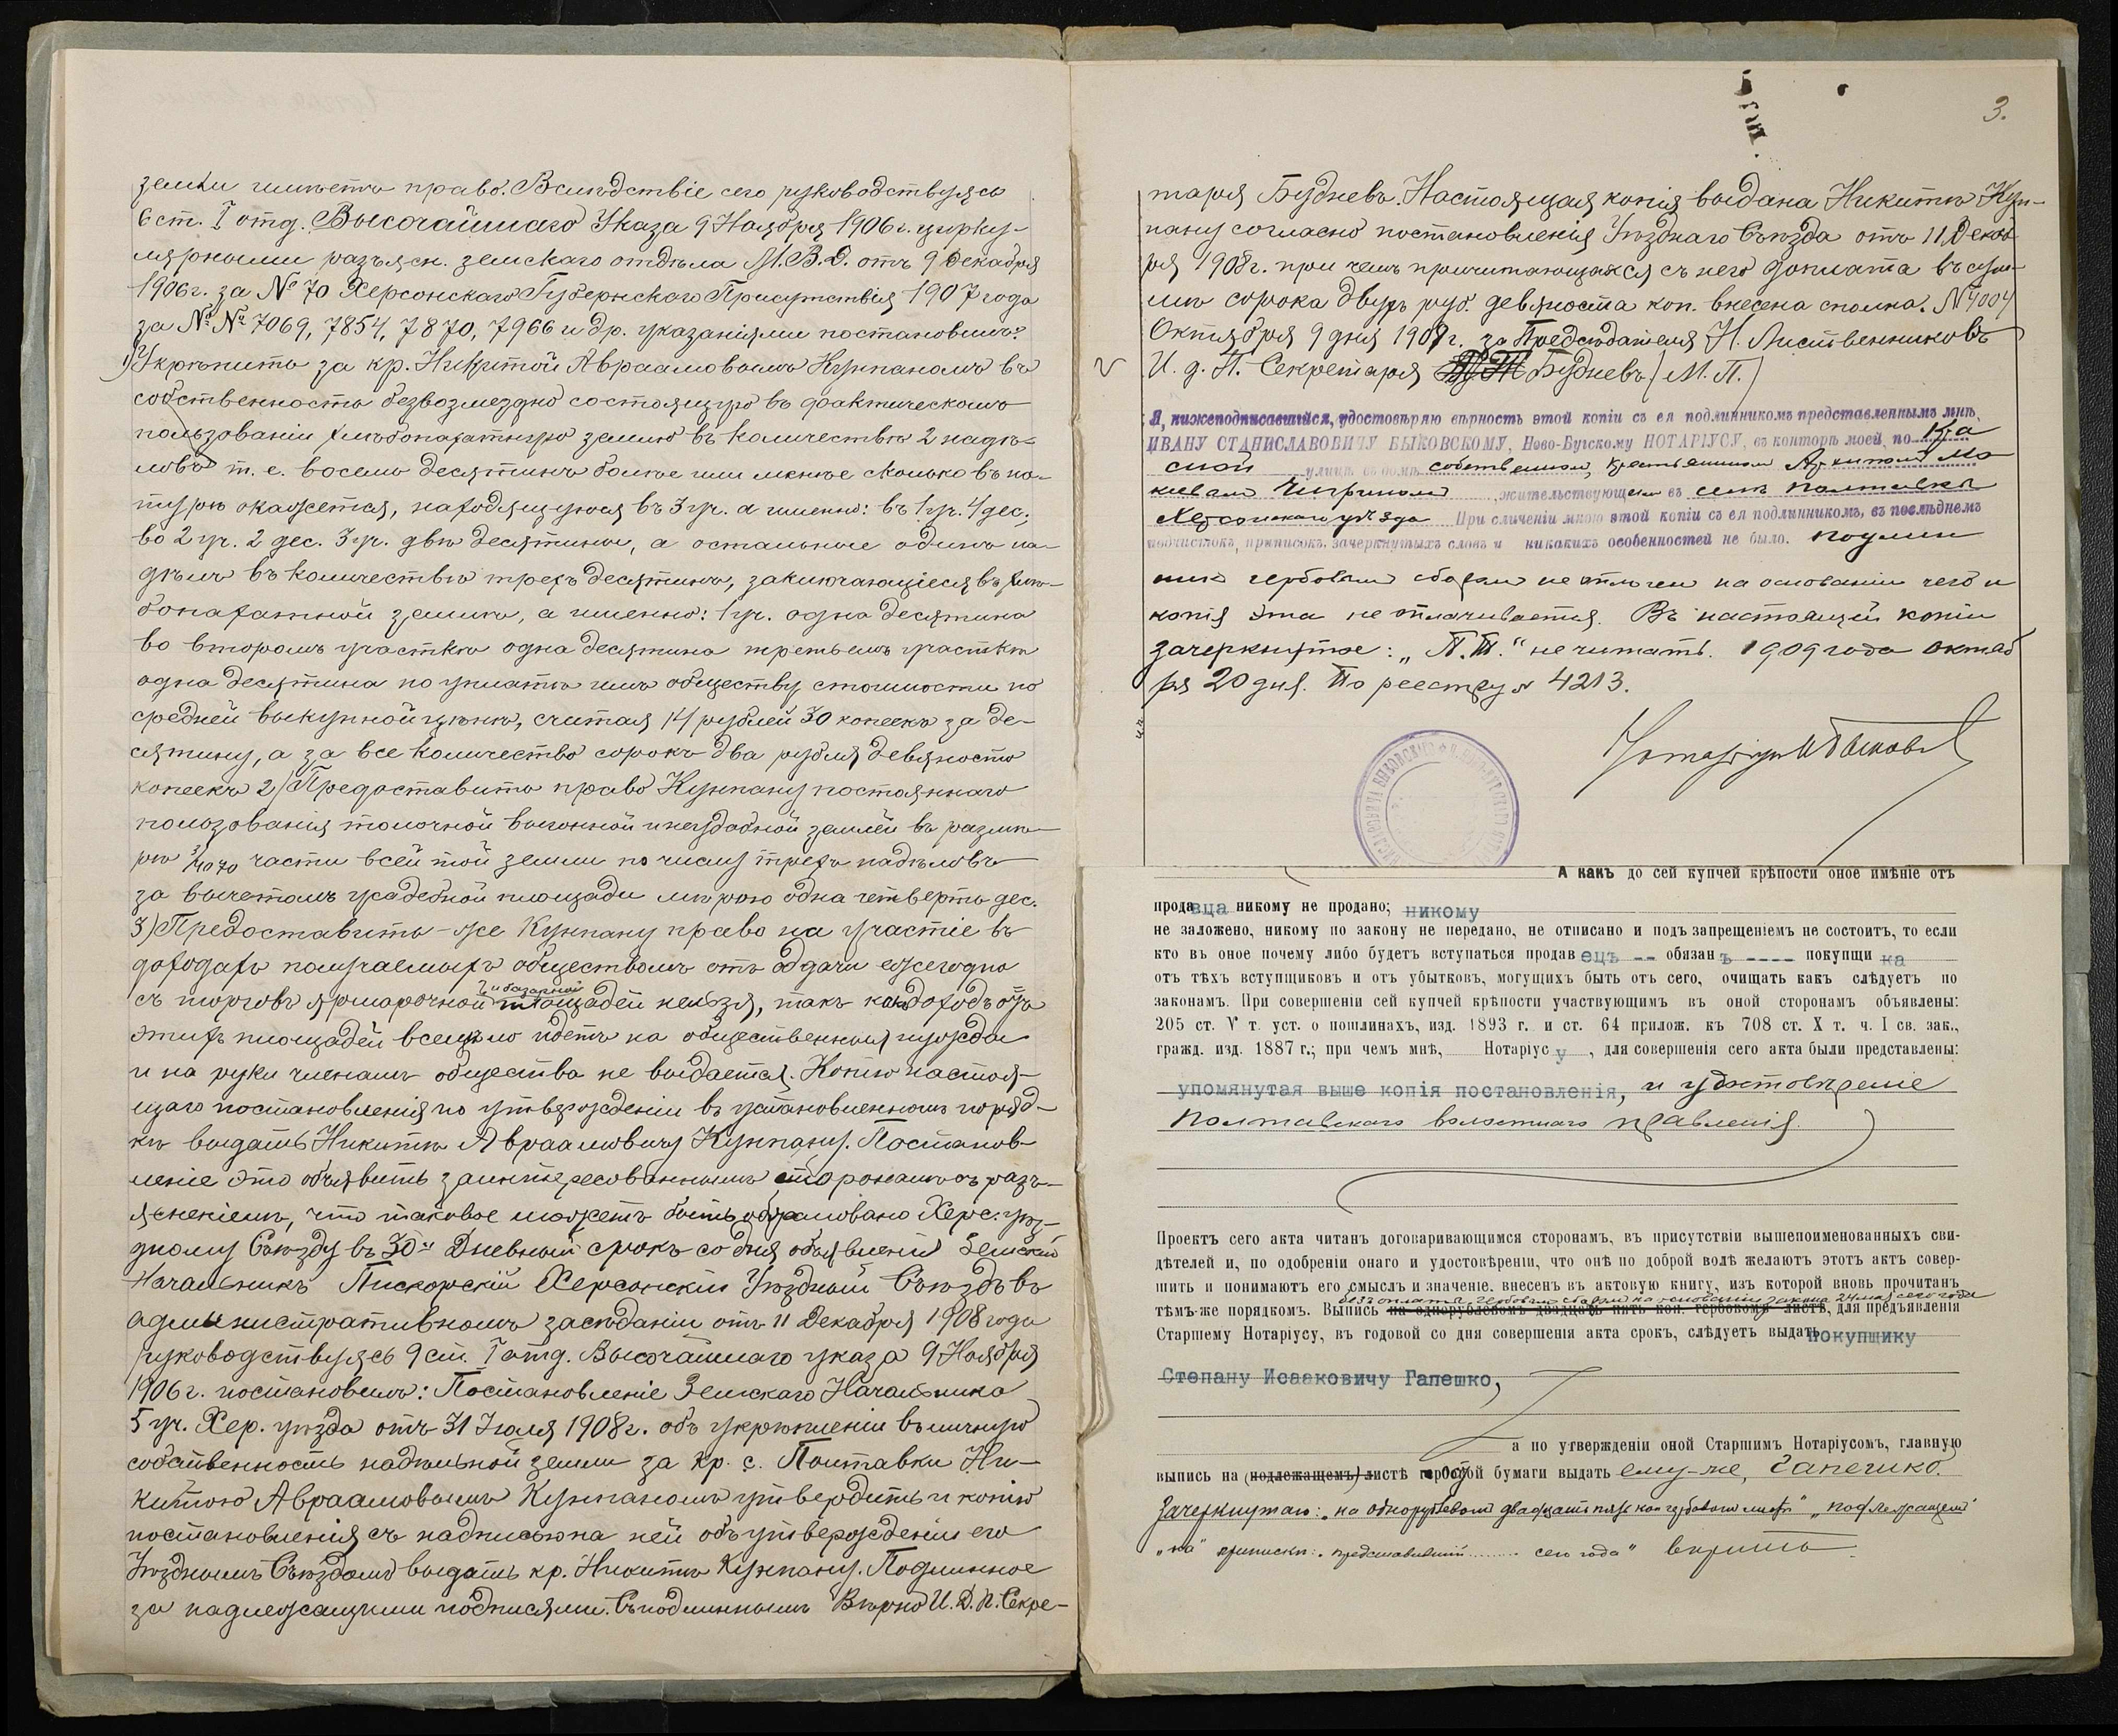 земли имѣетъ право. Вслѣдствіе сего руководствуясь
6 ст. I отд. Высочайшаго Указа 9 Ноября 1906 г. цирку-
лярными разъясн. земскаго отдѣла М.В.Д. отъ 9 Декабря
1906 г. за № 70 Херсонскаго Губернскаго Присутствія 1907 года
за №№ 7069, 7854, 7870, 7966 и др. указаніями постановилъ:
1) Укрѣпить за кр. Никитой Авраамовымъ Кунпаномъ въ
собственность безвозмездно состоящую въ фактическомъ
пользованіи хлѣбопахатную землю въ количествѣ 2 надѣ-
ловъ т. е. восемь десятинъ болѣе или менѣе сколько въ на-
турѣ окажется, находящуюся въ 3 уч. а именно: въ 1 уч. 4 дес;
во 2 уч. 2 дес. 3 уч. двѣ десятины, а остальные одинъ на-
дѣлъ въ количествѣ трехъ десятинъ, заключающіеся въ хлѣ-
бопахатной землѣ, а именно: 1 уч. одна десятина
во второмъ участкѣ одна десятина третьемъ участкѣ
одна десятина по уплатѣ имъ обществу стоимости по
средней выкупной цѣнѣ, считая 14 рублей 30 копеекъ за де-
сятину, а за все количество сорокъ два рубля девяносто
копеекъ 2) Предоставить право Кунпану постояннаго
пользованія толочной выгонной и неудобной землей въ размѣ-
рѣ 3/1070 части всей той земли по числу трехъ надѣловъ
за вычетомъ усадебной площади мѣрою одна четверть дес.
3) Предоставить-же Кунпану право на участіе въ
доходахъ получаемыхъ обществомъ отъ отдачи ежегодно
съ торговъ ярмарочной и базарной площадей нельзя, такъ какъ доходъ отъ
этихъ площадей всецѣло идетъ на общественныя нужды
и на руки членамъ общества не выдается. Копію настоя-
щаго постановленія по утвержденіи въ установленномъ поряд-
кѣ выдать Никитѣ Авраамовичу Кунпану. Постанов-
леніе это объявить заинтересованнымъ сторонамъ съ разъ-
ясненіемъ, что таковое можетъ быть обжаловано Херс. уѣз-
дному Съѣзду въ 30-ти Дневный срокъ со дня объявленія Земскій
Начальникъ Пискорскій Херсонскій Уѣздный Съѣздъ въ
административномъ засѣданіи отъ 11 Декабря 1908 года
руководствуясь 9 ст. I отд. Высочайшаго указа 9 Ноября
1906 г. постановилъ: Постановленіе Земскаго Начальника
5 уч. Хер. уѣзда отъ 31 Іюля 1908 г. объ укрѣпленіи въ личную
собственность надѣльной земли за кр. с. Полтавки Ни-
китою Авраамовымъ Кунпаномъ утвердить и копію
постановленія съ надписью на ней объ утвержденіи его
Уѣзднымъ Съѣздомъ выдать кр. Никитѣ Кунпану. Подлинное
за надлежащими подписями. Съ подлиннымъ Вѣрно И.Д.П. Секре-
3.
таря Будневъ. Настоящая копія выдана Никитѣ Кун-
пану согласно постановленія Уѣзднаго Съѣзда отъ 11 Декаб
ря 1908 г. при чемъ причитающаяся съ него доплата въ сум-
мѣ сорока двухъ руб. девяноста коп. внесена сполна. № 4004
Октября 9 дня 1909 г. за Предсѣдателя Н. Лиственниковъ
И. д. П. Секретаря П.Т. Будневъ (М. П.)
Я, нижеподписавшійся, удостовѣряю вѣрность этой копіи съ ея подлинникомъ представленнымъ мнѣ,
ИВАНУ СТАНИСЛАВОВИЧУ БЫКОВСКОМУ, Ново-Бугскому НОТАРІУСУ, въ конторѣ моей, по Кра
сной улицѣ въ домѣ собственномъ, крестьяниномъ
Чигриномъ, жительствующимъ въ селѣ Полтавкѣ
Херсонскаго уѣзда При сличеніи мною этой копіи съ ея подлинникомъ, въ послѣднемъ
подчистокъ, приписокъ, зачеркнутыхъ словъ и никакихъ особенностей не было. Подлин
никъ гербовымъ сборомъ не оплаченъ на основаніи чего и
копія эта не оплачивается. Въ настоящей копіи
зачеркнутое: „П.Т.“ не читать. 1909 года октяб
ря 20 дня. По реестру № 4213.
Нотаріусъ И Быковскій
А какъ до сей купчей крѣпости оное имѣніе отъ
продавца никому не продано; никому
не заложено, никому по закону не передано, не отписано и подъ запрещеніемъ не состоитъ, то если
кто въ оное почему либо будетъ вступаться продавецъ -- обязанъ ---- покупщика
отъ тѣхъ вступщиковъ и отъ убытковъ, могущихъ быть отъ сего, очищать какъ слѣдуетъ по
законамъ. При совершеніи сей купчей крѣпости участвующимъ въ оной сторонамъ объявлены:
205 ст. V т. уст. о пошлинахъ, изд. 1893 г. и ст. 64 прилож. къ 708 ст. X т. ч. I св. зак.,
гражд. изд. 1887 г.; при чемъ мнѣ, Нотаріусу, для совершенія сего акта были представлены:
упомянутая выше копія постановленія, и удостовѣреніе
Полтавскаго волостного правленія.
Проектъ сего акта читанъ договаривающимся сторонамъ, въ присутствіи вышепоименованныхъ сви-
дѣтелей и, по одобреніи онаго и удостовѣреніи, что онѣ по доброй волѣ желаютъ этотъ актъ совер-
шить и понимаютъ его смыслъ и значеніе, внесенъ въ актовую книгу, изъ которой вновь прочитанъ
безъ оплаты гербовымъ сборомъ на основаніи закона 24 мая сего года
тѣмъ-же порядкомъ. Выпись на однорублевомъ двадцать пять коп. гербовомъ листѣ, для предъявленія
Старшему Нотаріусу, въ годовой со дня совершенія акта срокъ, слѣдуетъ выдать покупщику
Степану Исааковичу Гапешко,
а по утвержденіи оной Старшимъ Нотаріусомъ, главную
выпись на (подлежащемъ) листѣ простой бумаги выдать ему-же, Гапешко.
Зачеркнутаго: „на однорублевомъ двадцать пять коп гербовомъ листѣ“ „подлежащемъ“
„на“ приписки: „представившій ........ сего года“ вѣрить